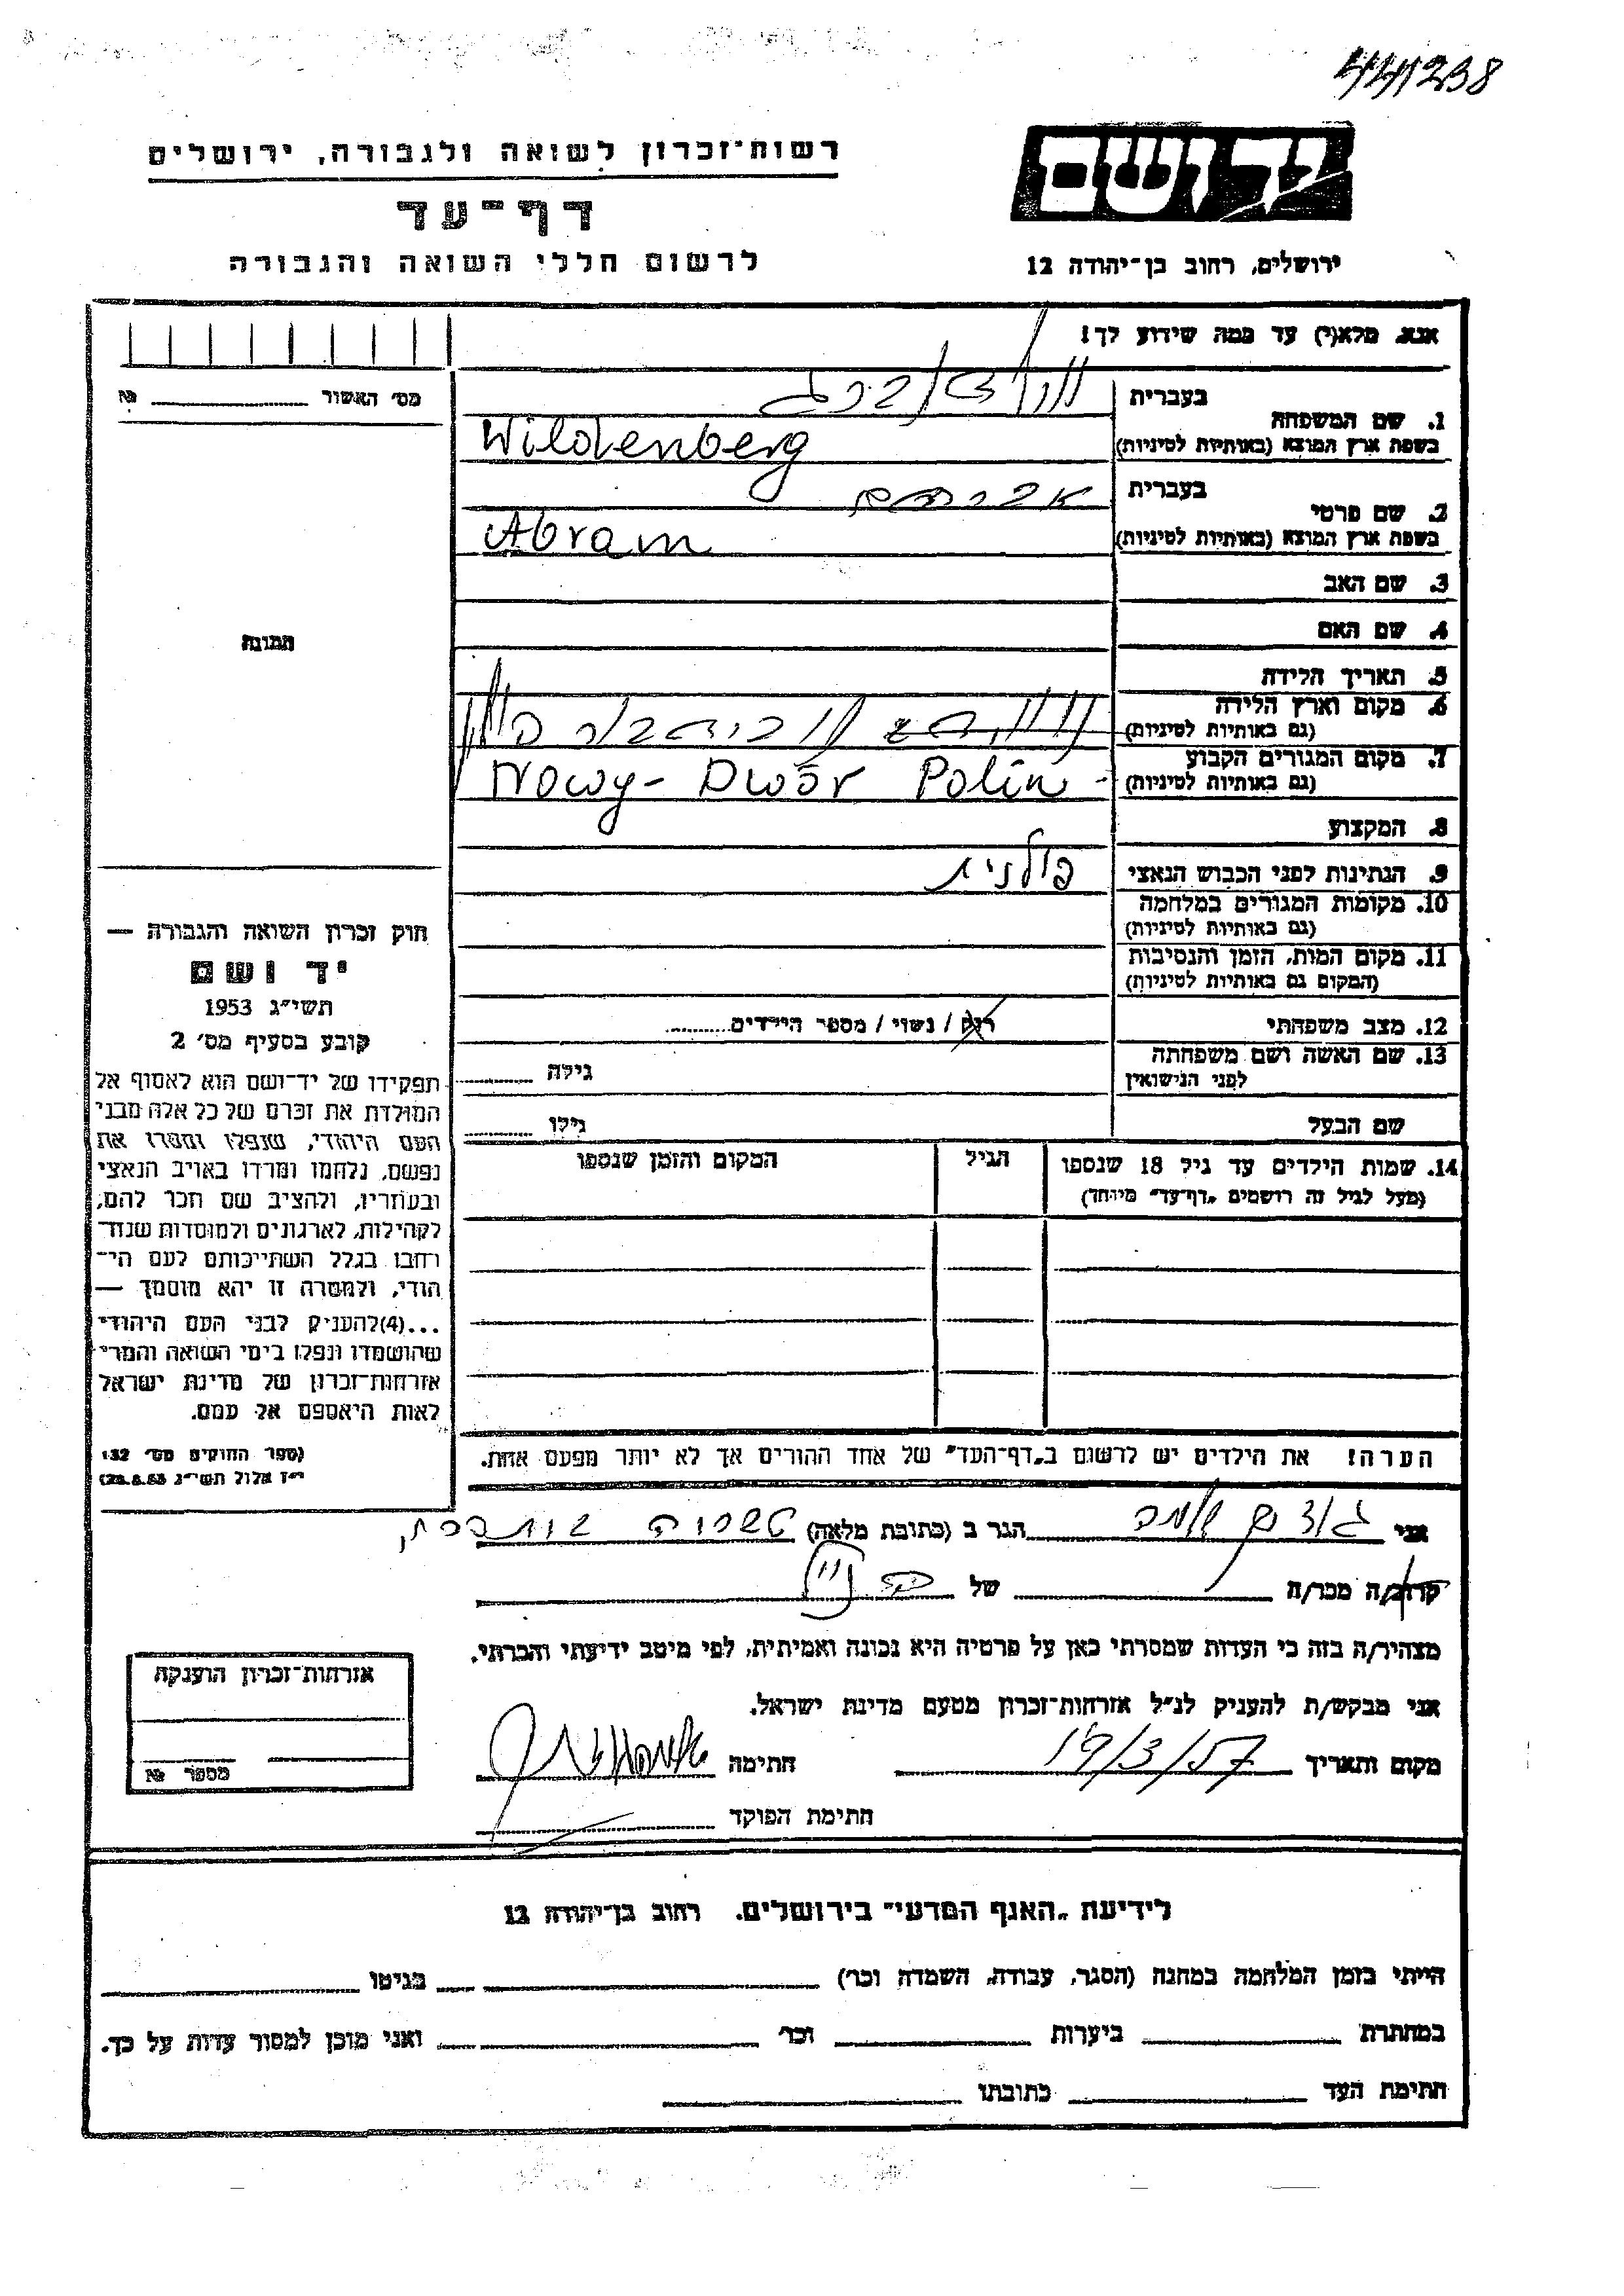 441238
רשות־זכרון לשואה ולגבורה, ירושלים
יד ושם
דף־עד
לרשום חללי השואה והגבורה
ירושלים, רחוב בן־יהודה 12
אנא, מלא(י) עד כמה שידוע לך!
מס׳ האשור № 
1. שם המשפחה
בעברית
בשפת ארץ המוצא (באותיות לטיניות) Wildenberg
2. שם פרטי
בעברית אברהם
בשפת ארץ המוצא (באותיות לטיניות) Abram
3. שם האב
4. שם האם
תמונה
5. תאריך הלידה
6. מקום וארץ הלידה
(גם באותיות לטיניות)
7. מקום המגורים הקבוע
(גם באותיות לטיניות) Nowy-Dwór Polin
8. המקצוע
9. הנתינות לפני הכבוש הנאצי פולנית
10. מקומות המגורים במלחמה
(גם באותיות לטיניות)
11. מקום המות, הזמן והנסיבות
(המקום גם באותיות לטיניות)
12. מצב משפחתי רווק / נשוי / מספר הילדים
13. שם האשה ושם משפחתה
לפני הנישואין גילה
שם הבעל גילו
14. שמות הילדים עד גיל 18 שנספו הגיל המקום והזמן שנספו
(מעל לגיל זה רושמים „דף־עד״ מיוחד)
הערה! את הילדים יש לרשום ב„דף־העד״ של אחד ההורים אך לא יותר מפעם אחת.
חוק זכרון השואה והגבורה —
יד ושם
תשי״ג 1953
קובע בסעיף מס׳ 2
תפקידו של יד־ושם הוא לאסוף אל
המולדת את זכרם של כל אלה מבני
העם היהודי, שנפלו ומסרו את
נפשם, נלחמו ומרדו באויב הנאצי
ובעוזריו, ולהציב שם וזכר להם,
לקהילות, לארגונים ולמוסדות שנח־
רחבו בגלל השתייכותם לעם הי־
הודי, ולמטרה זו יהא מוסמך —
...(4)להעניק לבני העם היהודי
שהושמדו ונפלו בימי השואה והמרי
אזרחות־זכרון של מדינת ישראל
לאות היאספם אל עמם.
(ספר החוקים מס׳ 132
י״ז אלול תשי״ג 28.8.53)
אני הגר ב (כתובת מלאה)
קרוב/ה מכר/ה של
מצהיר/ה בזה כי העדות שמסרתי כאן על פרטיה היא נכונה ואמיתית, לפי מיטב ידיעתי והכרתי.
אני מבקש/ת להעניק לנ״ל אזרחות־זכרון מטעם מדינת ישראל.
מקום ותאריך 19/3/57 חתימה
חתימת הפוקד
אזרחות־זכרון הוענקה
מספר №
לידיעת „האגף המדעי״ בירושלים. רחוב בן־יהודה 12
הייתי בזמן המלחמה במחנה (הסגר, עבודה, השמדה וכו׳) בגיטו
במחתרת ביערות וכו׳ ואני מוכן למסור עדות על כך.
חתימת העד כתובתו